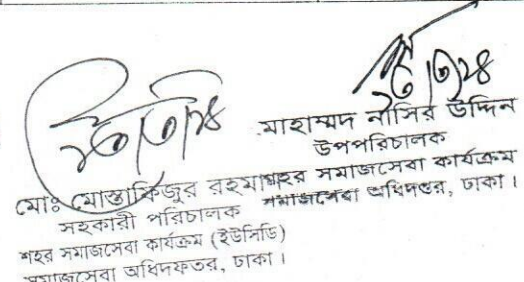 ২৫/৩/২৪
মাহাম্মদ নাসির উদ্দিন
উপপরিচালক
শহর সমাজসেবা কার্যক্রম
সমাজসেবা অধিদপ্তর, ঢাকা।
মোঃ মোস্তাকিজুর রহমান
সহকারী পরিচালক
শহর সমাজসেবা কার্যক্রম (ইউসিডি)
সমাজসেবা অধিদফতর, ঢাকা।